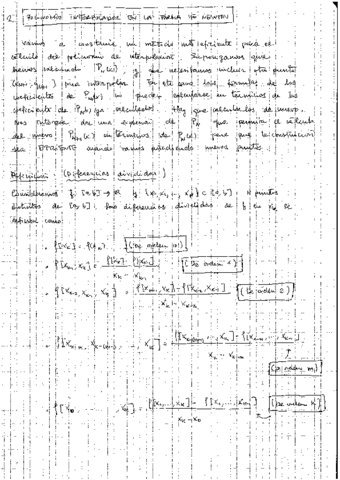 2. POLINOMIO INTERPOLADOR EN LA FORMA DE NEWTON
Vamos a construir un método más eficiente para el
cálculo del polinomio de interpolación. Supongamos que
hemos calculado P_N(x) y que necesitamos incluir otro punto
para interpolar. En este caso, las fórmulas de los
coeficientes de no pueden calcularse en términos de los
coeficientes de P_N(x) ya calculados. Hay que calcularlos de nuevo.
una expresión de P_N que permita el cálculo
del nuevo P_{N+1}(x) en términos de P_N(x) para que la construcción
sea EFICIENTE cuando vamos añadiendo nuevos puntos
Definición (Diferencias divididas)
Consideremos f: [a,b] → R y {x_0, x_1, ..., x_N} ⊂ [a,b], N puntos
distintos de [a,b]. Las diferencias divididas de f en x_k se
definen como:
• f[x_k] = f(x_k) (De orden 0)
• f[x_{k-1}, x_k] = (f[x_k] - f[x_{k-1}]) / (x_k - x_{k-1}) (De orden 1)
• f[x_{k-2}, x_{k-1}, x_k] = (f[x_{k-1}, x_k] - f[x_{k-2}, x_{k-1}]) / (x_k - x_{k-2}) (De orden 2)
(De orden m)
f[x_0, ..., x_k] = (f[x_1, ..., x_k] - f[x_0, ..., x_{k-1}]) / (x_k - x_0) (De orden k)